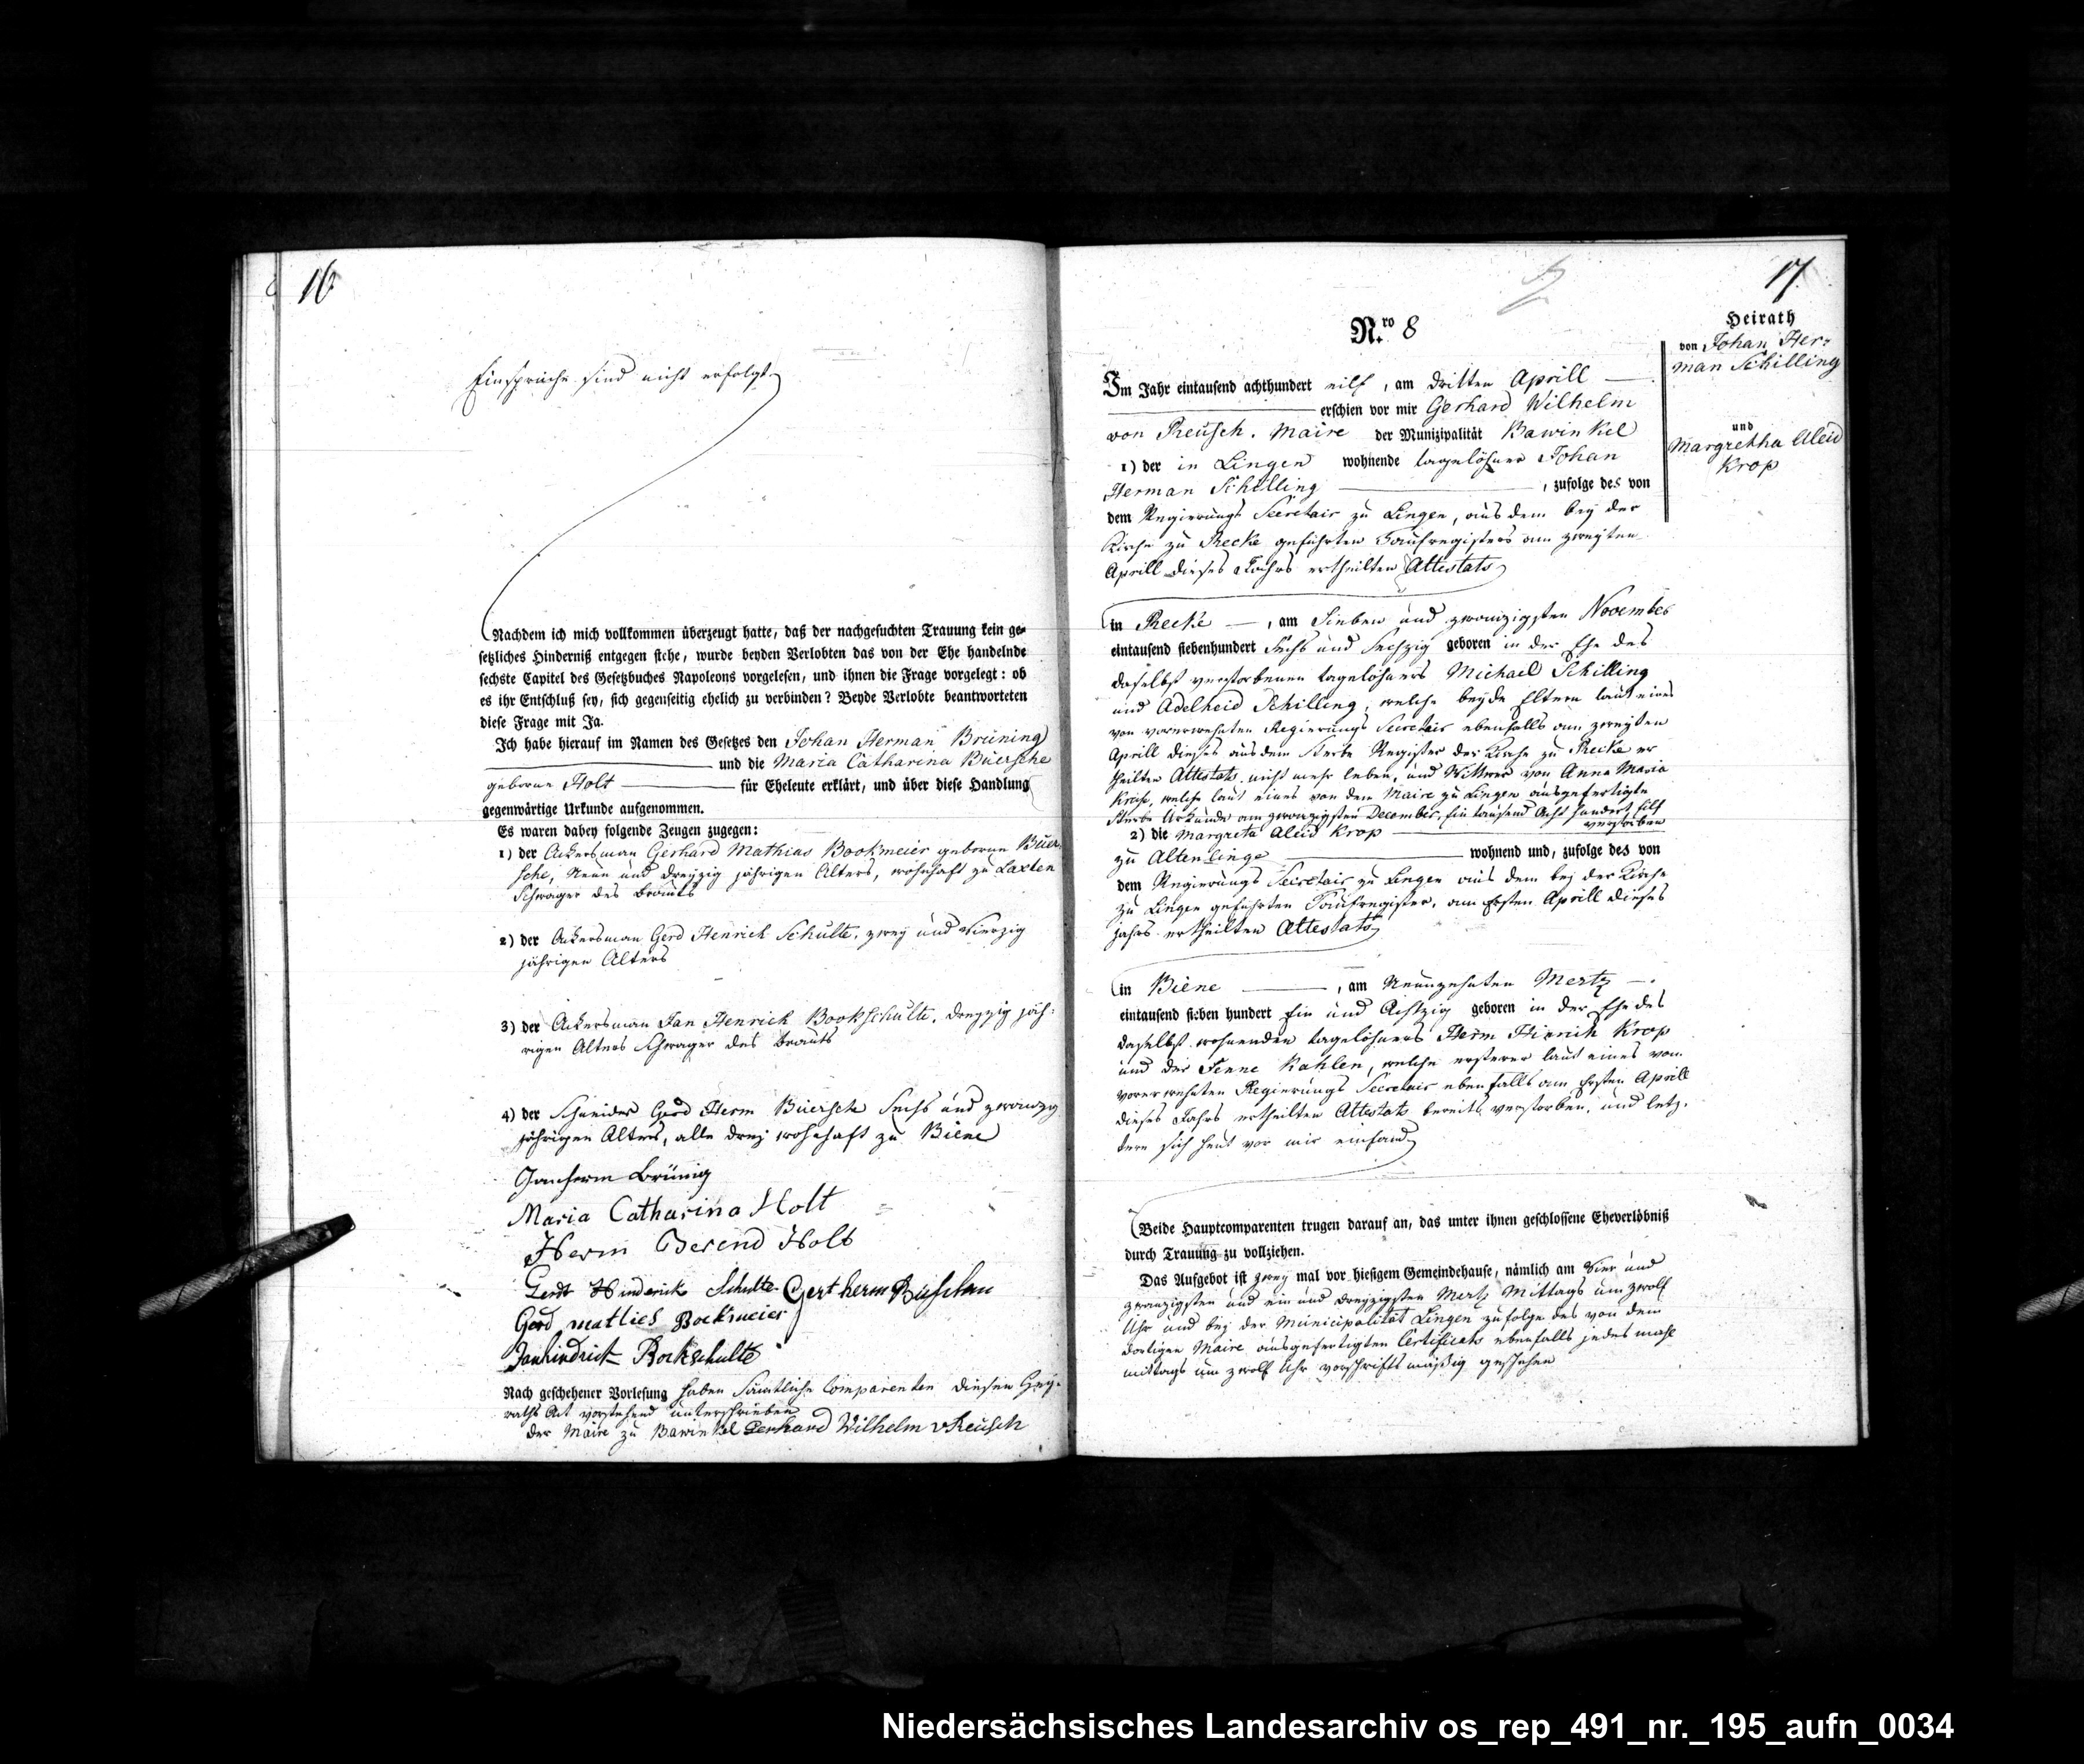 16
Einsprüche sind nicht erfolgt
Nachdem ich mich vollkommen überzeugt hatte, daß der nachgesuchten Trauung kein ge-
setzliches Hinderniß entgegen stehe, wurde beyden Verlobten das von der Ehe handelnde
sechste Capitel des Gesetzbuches Napoleons vorgelesen, und ihnen die Frage vorgelegt: ob
es ihr Entschluß sey, sich gegenseitig ehelich zu verbinden? Beyde Verlobte beantworteten
diese Frage mit Ja.
Ich habe hierauf im Namen des Gesetzes den Johan Herman Brüning
und die Maria Catharina Büersche
geborne Holt für Eheleute erklärt, und über diese Handlung
gegenwärtige Urkunde aufgenommen.
Es waren dabey folgende Zeugen zugegen:
1) der Ackersman Gerhard Mathias Bookmeier geborne Büer-
sche, Neun und dreyzig jährigen Alters, wohnhaft zu Laxten
Schwager des Brauts
2) der Ackersman Gerd Henrich Schulte, zwey und Vierzig
jährigen Alters
3) der Ackersman Jan Henrich Bookschulte, dreyzig jäh-
rigen Alters Schwager des Brauts
4) der Schneider Gerd Herm Büersche Sechs und zwanzig
jährigen Alters, alle drey wohnhaft zu Biene
Janherm Brünig
Maria Catharina Holt
Herm Berend Holt
Gerdt Hinderick Schulte Gert herm Büschen
Gerd matlies Bockmeier
Janhindrick Bockschulte
Nach geschehener Vorlesung haben Sämtliche Comparenten diesen Hey-
raths Act vorstehend unterschrieben
der Maire zu Bawinkel Gerhard Wilhelm vReusch
17
Heirath
von Johan Her-
man Schilling
und
Margretha Aleid
Krop
N.ro 8
Im Jahr eintausend achthundert eilf, am dritten Aprill
erschien vor mir Gerhard Wilhelm
von Reusch. Maire der Munizipalität Bawinkel
1) der in Lingen wohnende tagelöhner Johan
Herman Schilling, zufolge des von
dem Regierungs Secretair zu Lingen, aus dem bey der
Kirche zu Recke geführten Taufregisters am zweyten
Aprill dieses Jahrs ertheilten Attestats
in Recke, am Sieben und zwanzigsten November
eintausend siebenhundert Sechs und Sechzig geboren in der Ehe des
daselbst verstorbenen tagelöhners Michael Schilling
und Adelheid Schilling, welche beyde Eltern laut eines
von vorerwehnten Regierungs Secretair ebenfalls am zweyten
Aprill dieses aus dem Sterbe Register der Kirche zu Recke er
theilten Attestats nicht mehr leben, und Wittwer von Anna Maria
welche laut eines von dem Maire zu Lingen ausgefertigte
Sterbe Urkunde am zwanzigsten December, Ein tausend Acht hundert
verstorben
2) die Margreta Aleid Krop
zu Altenlinge wohnend und, zufolge des von
dem Regierungs Secretair zu Lingen aus dem bej der Kirche
zu Lingen geführten Taufregister, am Ersten Aprill dieses
jahrs ertheilten Attestats
in Biene, am Neunzehnten Mertz
eintausend sieben hundert Ein und Achtzig geboren in der Ehe des
daselbst wohnenden tagelöhners Herm Hinrich Krop
und der Fenne Kahlen, welche ersterer laut eines von
vorerwehnten Regierungs Secretair ebenfalls am Ersten Aprill
dieses Jahrs ertheilten Attestats bereits verstorben, und letz-
tere sich heut vor mir einfand
Beide Hauptcomparenten trugen darauf an, das unter ihnen geschlossene Eheverlöbniß
durch Trauung zu vollziehen.
Das Aufgebot ist zwey mal vor hiesigem Gemeindehause, nämlich am Vier und
zwanzigsten und ein und dreyzigsten Mertz Mittags um zwolf
Uhr und bej der Municipalität Lingen zufolge des von dem
dortigen Maire ausgefertigten Certificats ebenfalls jedes mahl
mittags um zwolf Uhr vorschriftsmäßig geschehen
Niedersächsisches Landesarchiv os_rep_491_nr._195_aufn_0034